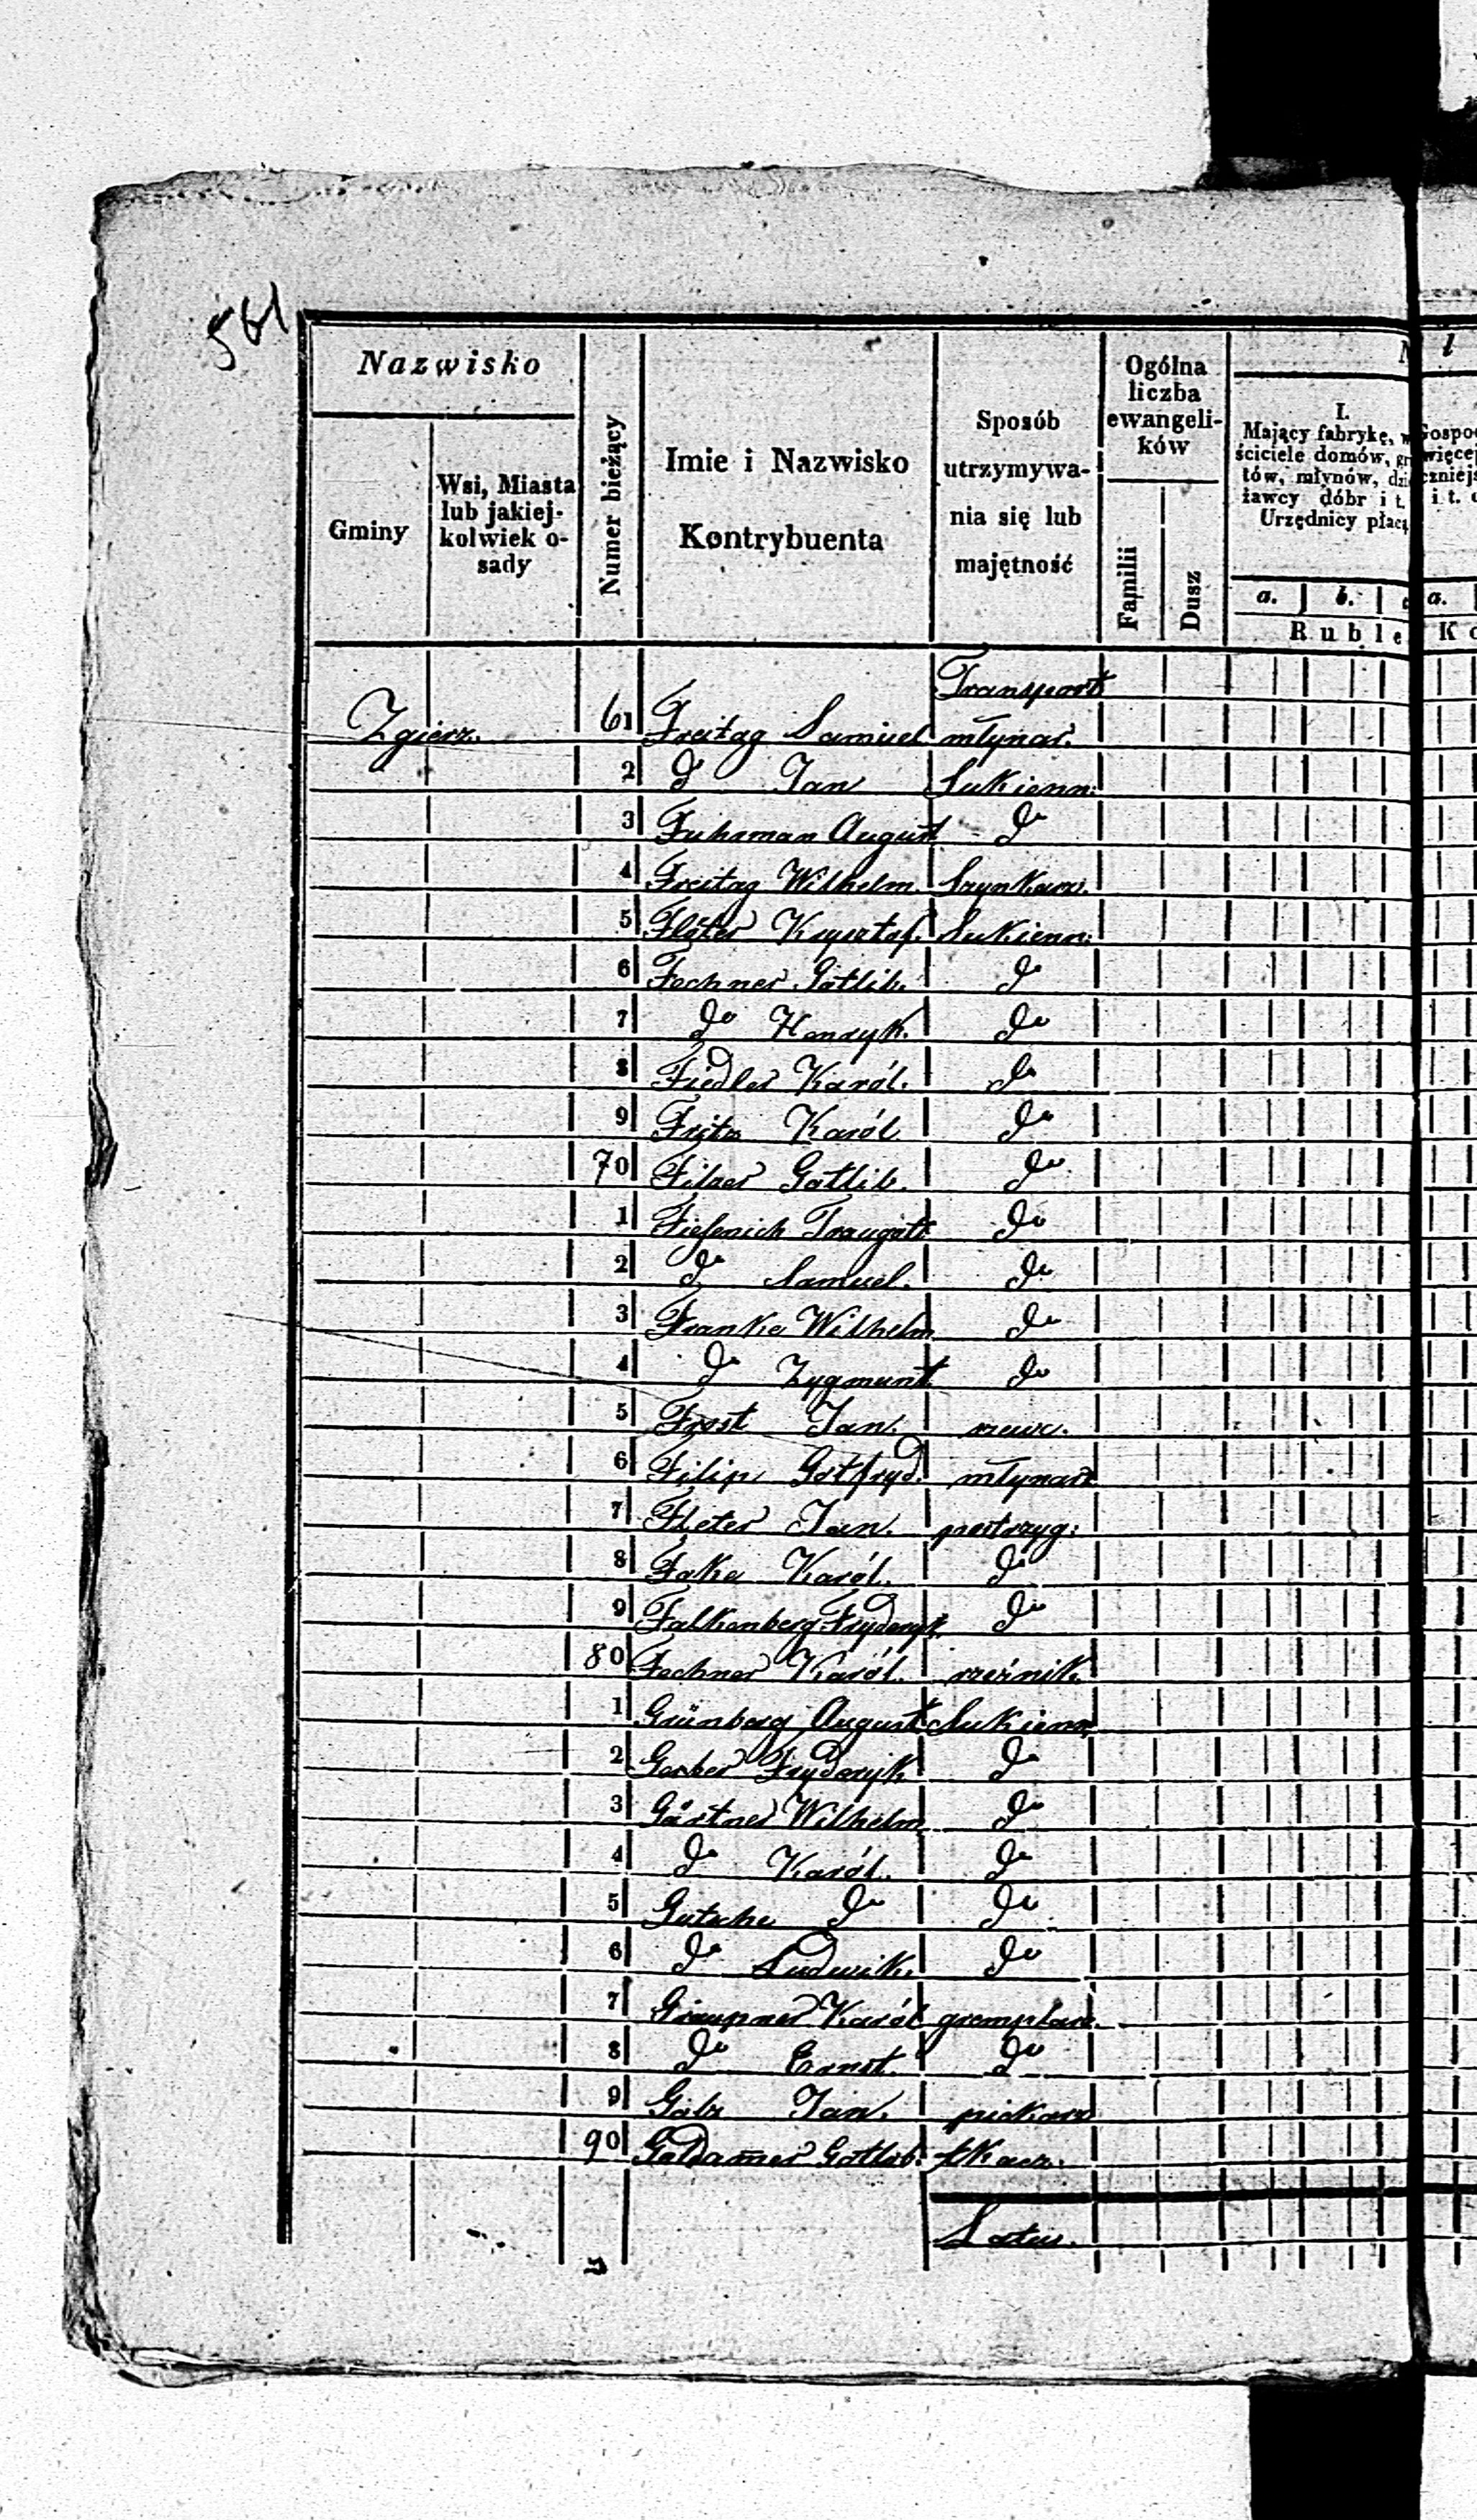 561
Nazwisko
Gminy
Wsi, Miasta
lub jakiej-
kolwiek o-
sady
Numer bieżący
Imie i Nazwisko
Kontrybuenta
Sposób
utrzymywa-
nia się lub
majętność
Ogólna
liczba
ewangeli-
ków
Familii
Dusz
I.
Mający fabrykę,
ściciele domów,
tów, młynów,
żawcy dóbr i t.
Urzędnicy
a. b. a.
Ruble
Transport
Zgierz. 61 Freitag Samuel młynar.
2 do Jan Sukienn:
3 Fuhrman August do
4 Freitag Wilhelm Szynkarz.
5 Flöter Krysztof. Sukienn:
6 Fechner Gotlib. do
7 do Henryk. do
8 Fiedler Karól. do
9 Fritz Karól do
70 Filzer Gotlib. do
1 Traugott do
2 do Samuel. do
3 Franke Wilhelm do
4 do Zygmunt. do
5 Frost Jan. szewc.
6 Filip Gotfryd. młynarz
7 Fleter Jan. postrzyg:
8 Fake Karól. do
9 Falkenberg Fryderyk. do
80 Fechner Karól. rzeźnik.
1 Grünberg August Sukienn:
2 Gerber Fryderyk do
3 Gärtner Wilhelm do
4 do Karól. do
5 Gutsche do do
6 do Ludwik. do
7 Graupner Karól gremplarz.
8 do Ernst. do
9 Golz Jan. piekarz
90 Goldam̄er Gotlob. tkacz.
Latus.